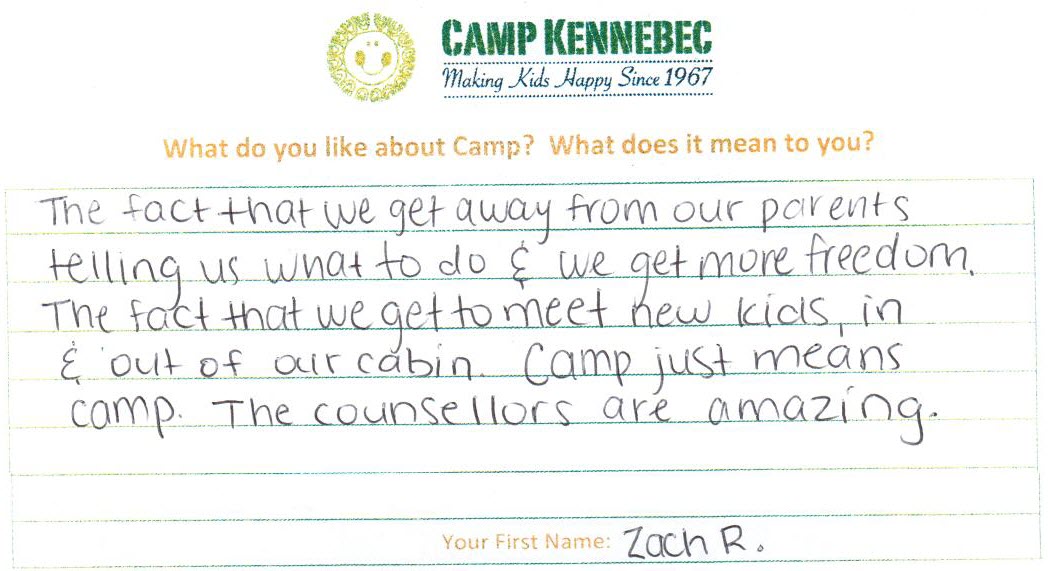 CAMP KENNEBEC
Making Kids Happy Since 1967
What do you like about Camp? What does it mean to you?
The fact that we get away from our parents
telling us what to do & we get more freedom.
The fact that we get to meet new kids, in
& out of our cabin. Camp just means
camp. The counsellors are amazing.
Your First Name: Zach R.